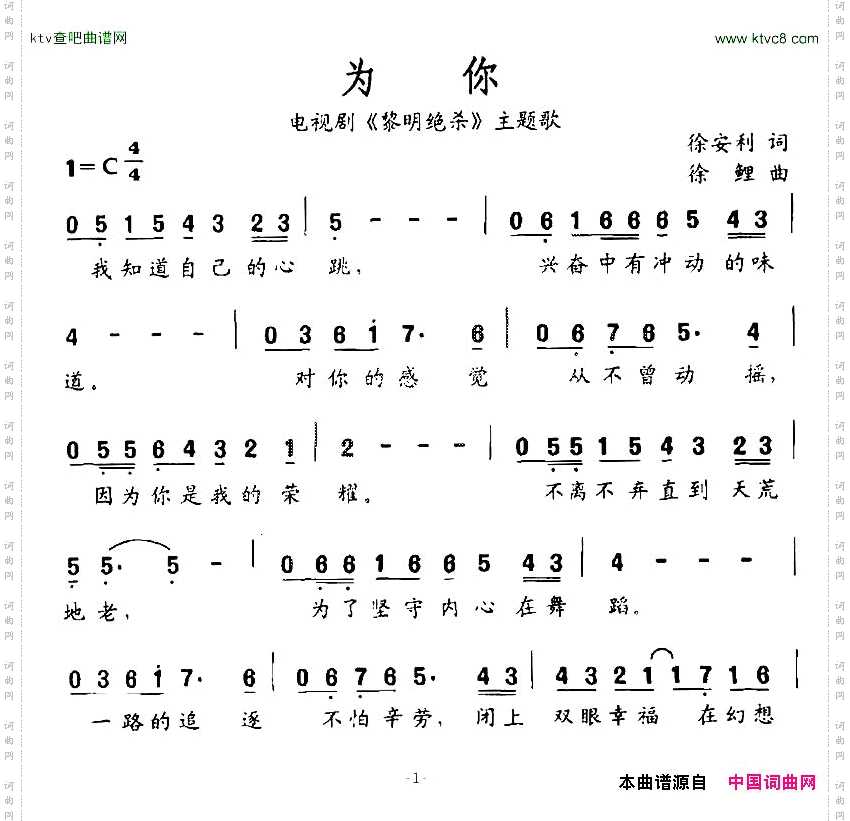 ktv查吧曲谱网 www.ktvc8.com
为 你
电视剧《黎明绝杀》主题歌
徐安利 词
1=C 4/4
徐 鲤 曲
0 5 1 5 4 3 2 3 | 5 - - - | 0 6 1 6 6 6 6 5 4 3 |
我知道自己的心跳, 兴奋中有冲动的味
4 - - - | 0 3 6 i 7· 6 | 0 6 7 6 5· 4 |
道。 对你的感觉 从不曾动摇,
0 5 5 6 4 3 2 1 | 2 - - - | 0 5 5 1 5 4 3 2 3 |
因为你是我的荣耀。 不离不弃直到天荒
5 5· 5 - | 0 6 6 1 6 6 5 4 3 | 4 - - - |
地老, 为了坚守内心在舞蹈。
0 3 6 i 7· 6 | 0 6 7 6 5· 4 3 | 4 3 2 1 1 7 1 6 |
一路的追逐 不怕辛劳, 闭上双眼幸福在幻想
-1-
本曲谱源自 中国词曲网
词曲网